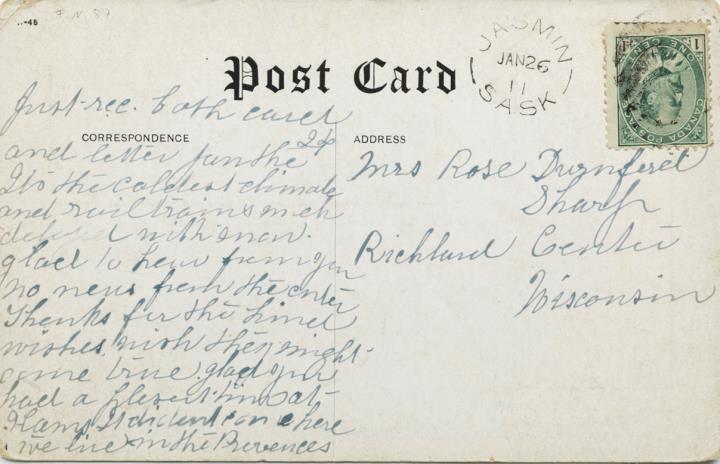 F.N. 87
-46
Post Card
JASMIN
JAN 26
11
SASK
CANADA POSTAGE
ONE CENT
1 1
CORRESPONDENCE
ADDRESS
Just rec. both cards
and letter Jan the 24
Its the coldest climate
and rail trains much
delayed with snow.
glad to hear from you
no news from the
Thanks for the kind
wishes wish they might
come true glad you
had a plesent time at
It dident come here
we live in the Provences
Mrs Rose
Sharp
Richland Center
Wisconsin